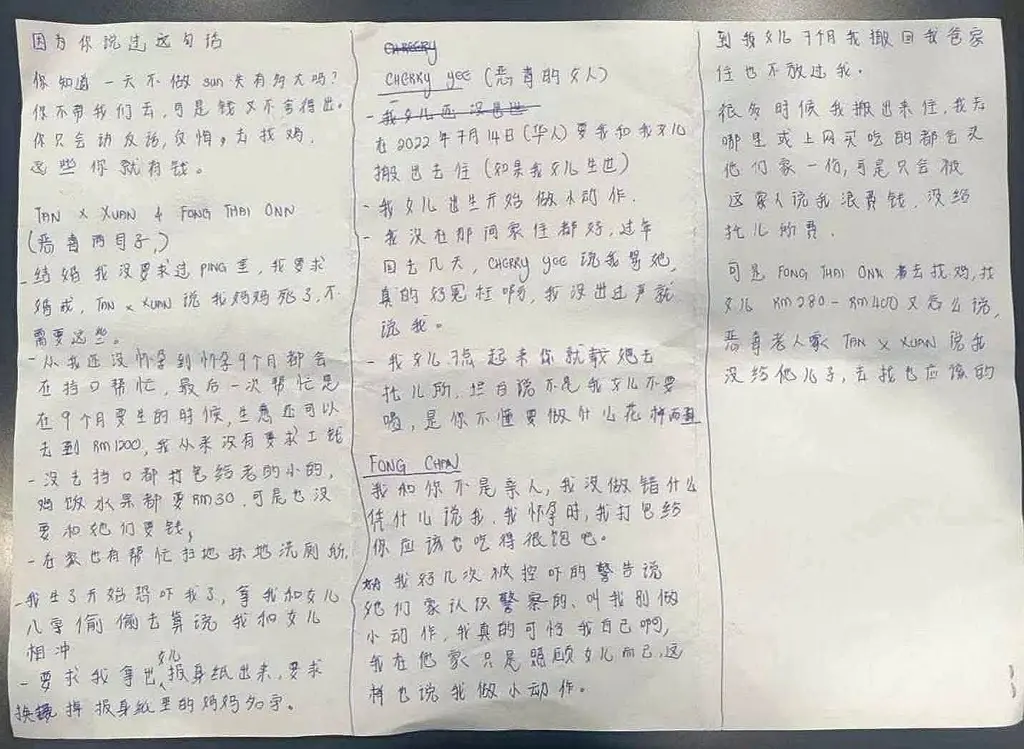 因为你说过这句话
你知道一天不做 sun 失有多大吗?
你不带我们去,可是钱又不舍得出。
你只会动发话,反悔。去找鸡,
这些你就有钱。
TAN X XUAN & FONG THAI ONN
(恶毒两母子,)
- 结婚我没要求过 PING 金,我要求
婚戒,TAN X XUAN 说我妈妈死了,不
需要这些。
- 从我还没怀孕到怀孕9个月都会
在挡口帮忙,最后一次帮忙是
在9个月要生的时候,生意还可以
去到 RM1200,我从来没有要求工钱
- 没去挡口都打包给老的小的,
鸡饭水果都要RM30,可是也没
要和她们要钱,
- 在家也有帮忙扫地抹地洗厕所
- 我生了开始恐吓我了,拿我和女儿
八字偷偷去算说我和女儿
相冲
- 要求我拿出女儿报身纸出来,要求
换掉报身纸里的妈妈名字。
CHERRY
CHERRY YEE (恶毒的女人)
- 我女儿还没出世
在2022年7月14日(华人)要我和我女儿
搬出去住(如果我女儿生也)
- 我女儿出生开始做小动作.
- 我没在那间家住都好,过年
回去几天,CHERRY YEE 说我骂她,
真的好冤枉啊,我没出过声就
说我。
- 我女儿7点起来你就载她去
托儿所,坦白说不是我女儿不要
喝,是你不懂要做什么花样而直
FONG CHAN
我和你不是亲人,我没做错什么
凭什么说我,我怀孕时,我打包给
你应该也吃得很饱吧。
我好几次被控吓的警告说
她们家认识警察的、叫我别做
小动作,我真的可怕我自己啊,
我在他家只是照顾女儿而己,这
样也说我做小动作。
到我女儿7个月我搬回我爸家
住也不放过我。
很多时候我搬出来住,我去
哪里或上网买吃的都会买
他们家一份,可是只会被
这家人说我浪费钱,没给
托儿所费.
可是 FONG THAI ONN 去找鸡,找
女儿 RM280 - RM400 又怎么说,
恶毒老人家 TAN X XUAN 说我
没给他儿子,去找也应该的